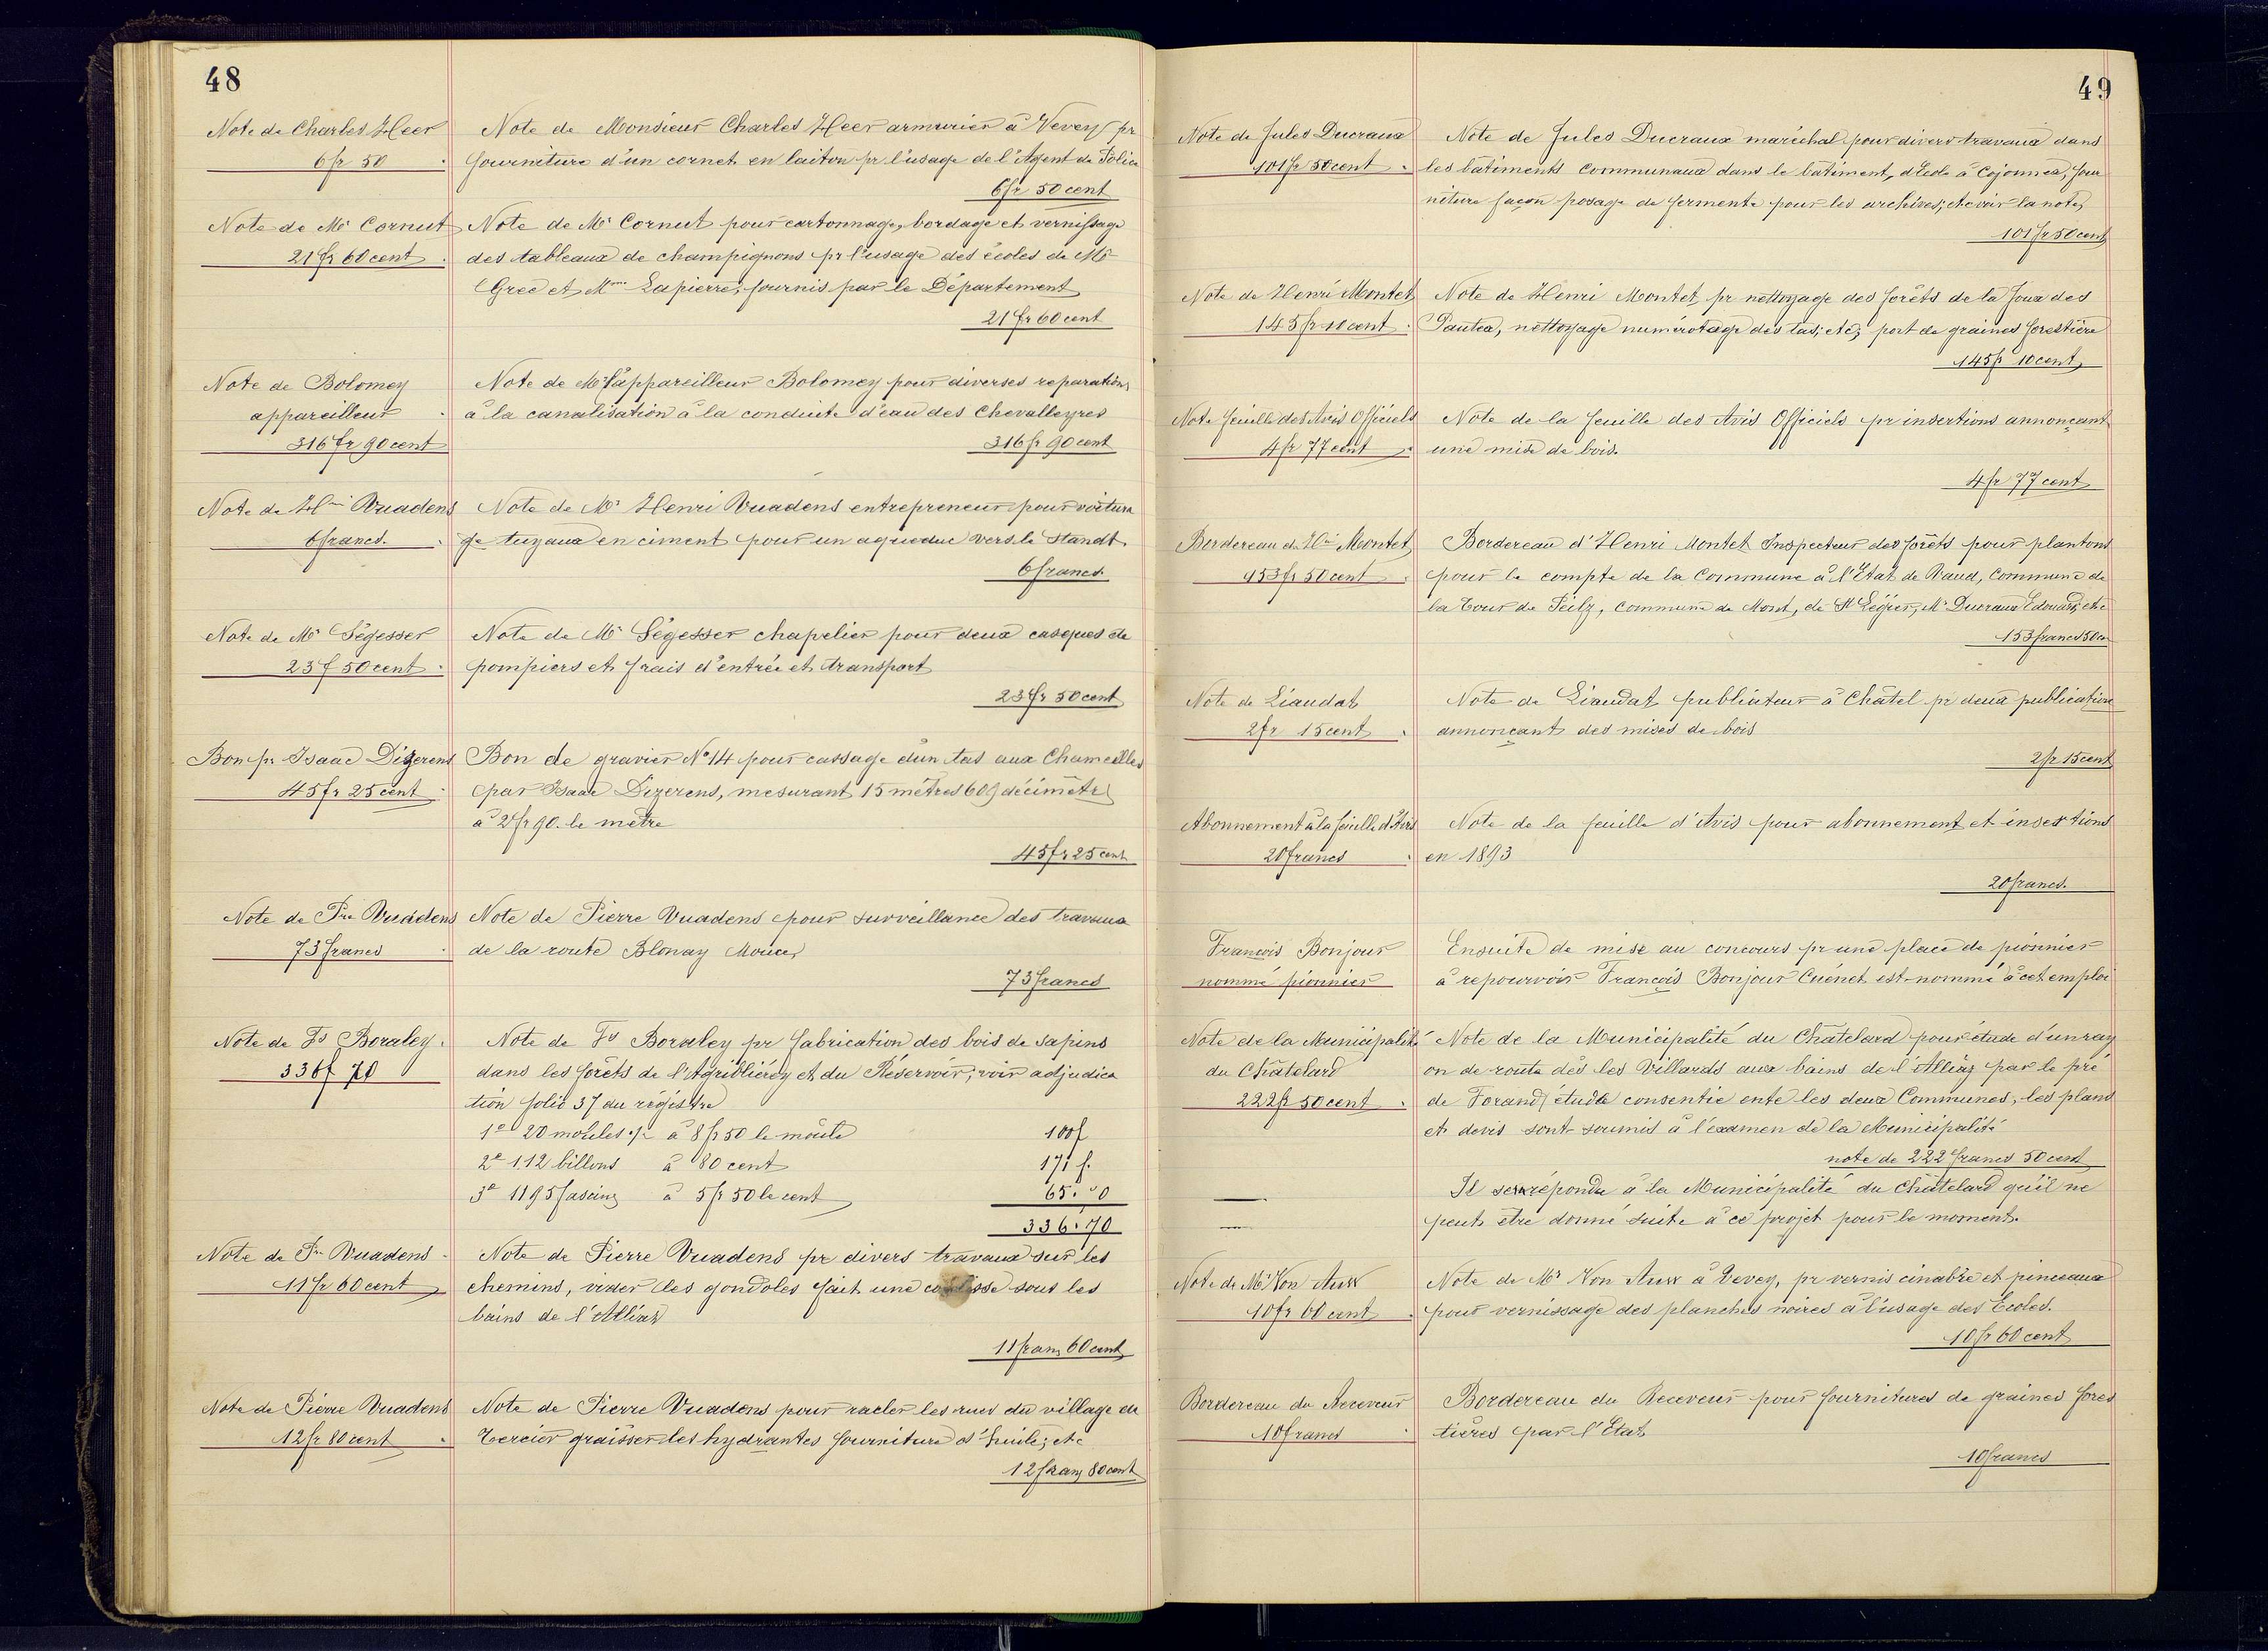 48
Note de Charles Heer
6 fr 50
Note de Monsieur Charles Heer armurier à Vevey pr
fourniture d'un cornet en laiton pr l'usage de l'Agent de Police
6 fr 50 cent
Note de Mr Cornut
21 fr 60 cent
Note de Mr Cornut pour cartonnage, bordage et vernissage
des tableaux de champignons pr l'usage des écoles de Mr
Grec et Mme Lapierre, fournis par le Département
21 fr 60 cent
Note de Bolomey
appareilleur
316 fr 90 cent
Note de Mr l'appareilleur Bolomey pour diverses reparations
à la canalisation à la conduite d'eau des Chevalleyres
316 fr 90 cent
Note de Hri Vuadens
6 francs.
Note de Mr Henri Vuadens entrepreneur pour voitura
ge tuyaux en ciment pour un aqueduc vers le Standt.
6 francs.
Note de Mr Ségesser
23 f 50 cent
Note de Mr Ségesser chapelier pour deux casques de
pompiers et frais d'entrée et transport
23 fr 50 cent
Bon pr Isaac Dizerens
45 fr 25 cent
Bon de gravier No 14 pour cassage d'un tas aux Chameilles
par Isaac Dizerens, mesurant 15 mètres 609 décimètres
à 2 fr 90. le mètre
45 fr 25 cent
Note de Pre Vuadens
73 francs
Note de Pierre Vuadens pour surveillance des travaux
de la route Blonay Mouces
73 francs
Note de Fs Boraley
336 f 70
Note de Fs Boraley pr fabrication des bois de sapins
dans les forêts de l'Agribliéroz et du Réservoir, voir adjudica
tion folio 37 du régistre
1o 20 moules à 8 fr 50 le moule 100 f
2o 112 billons à 80 cent 171 f.
3o 1195 fascines à 5 fr 50 le cent 65.70
336.70
Note de Pre Vuadens
11 fr 60 cent
Note de Pierre Vuadens pr divers travaux sur les
chemins, vider les gondoles fait une coulisse sous les
bains de l'Alliaz
11 francs 60 cent
Note de Pierre Vuadens
12 fr 80 cent
Note de Pierre Vuadens pour racler les rues du village de
Tercier graisser les hydrantes fourniture d'huile; etc
12 francs 80 cent
49
Note de Jules Ducraux
101 fr 50 cent
Note de Jules Ducraux maréchal pour divers travaux dans
les bâtiments communaux dans le bâtiment, d'Ecole à Cojonnex, four
niture façon posage de fermente pour les archives; etc voir la note,
101 fr 50 cent
Note de Henri Montet
145 fr 10 cent
Note de Henri Montet pr nettoyage des forêts de la Joux des
Pautex, nettoyage numérotage des tas; etc; port de graines forestière
145 fr 10 cent
Note feuille des Avis Officiels
4 fr 77 cent
Note de la feuille des Avis Officiels pr insertions annonçant
une mise de bois.
4 fr 77 cent
Bordereau de Hri Montet
153 fr 50 cent
Bordereau d'Henri Montet Inspecteur des forêts pour plantons
pour le compte de la Commune à l'Etat de Vaud, Commune de
la Tour de Peilz, commune de Mont, de St Légier, Mr Ducraux Edouard; etc
153 francs 50 ce
Note de Liaudat
2 fr 15 cent
Note de Liaudat publicateur à Châtel pr deux publication
annonçant des mises de bois
2 fr 15 cent
Abonnement à la feuille d'Avis
20 francs
Note de la feuille d'Avis pour abonnement et insertions
en 1893
20 francs.
François Bonjour
nommé pionnier
Ensuite de mise au concours pr une place de pionnier
à repourvoir François Bonjour Cuénet est nommé à cet emploi
Note de la Municipalité
du Châtelard
222 fr 50 cent
Note de la Municipalité du Châtelard pour étude d'un ray
on de route dès les Villards aux bains de l'Alliaz par le pré
de Forand, étude consentie ente les deux Communes, les plans
et devis sont soumis à l'examen de la Municipalité
note de 222 francs 50 cent
Il sera répondu à la Municipalité du Châtelard qu'il ne
peut être donné suite à ce projet pour le moment.
Note de Mr Von Auw
10 fr 60 cent
Note de Mr Von Auw à Vevey, pr vernis cinabre et pinceaux
pour vernissage des planches noires à l'usage des Ecoles.
10 fr 60 cent
Bordereau du Receveur
10 francs
Bordereau du Receveur pour fournitures de graines fores
tières par l'Etat
10 francs